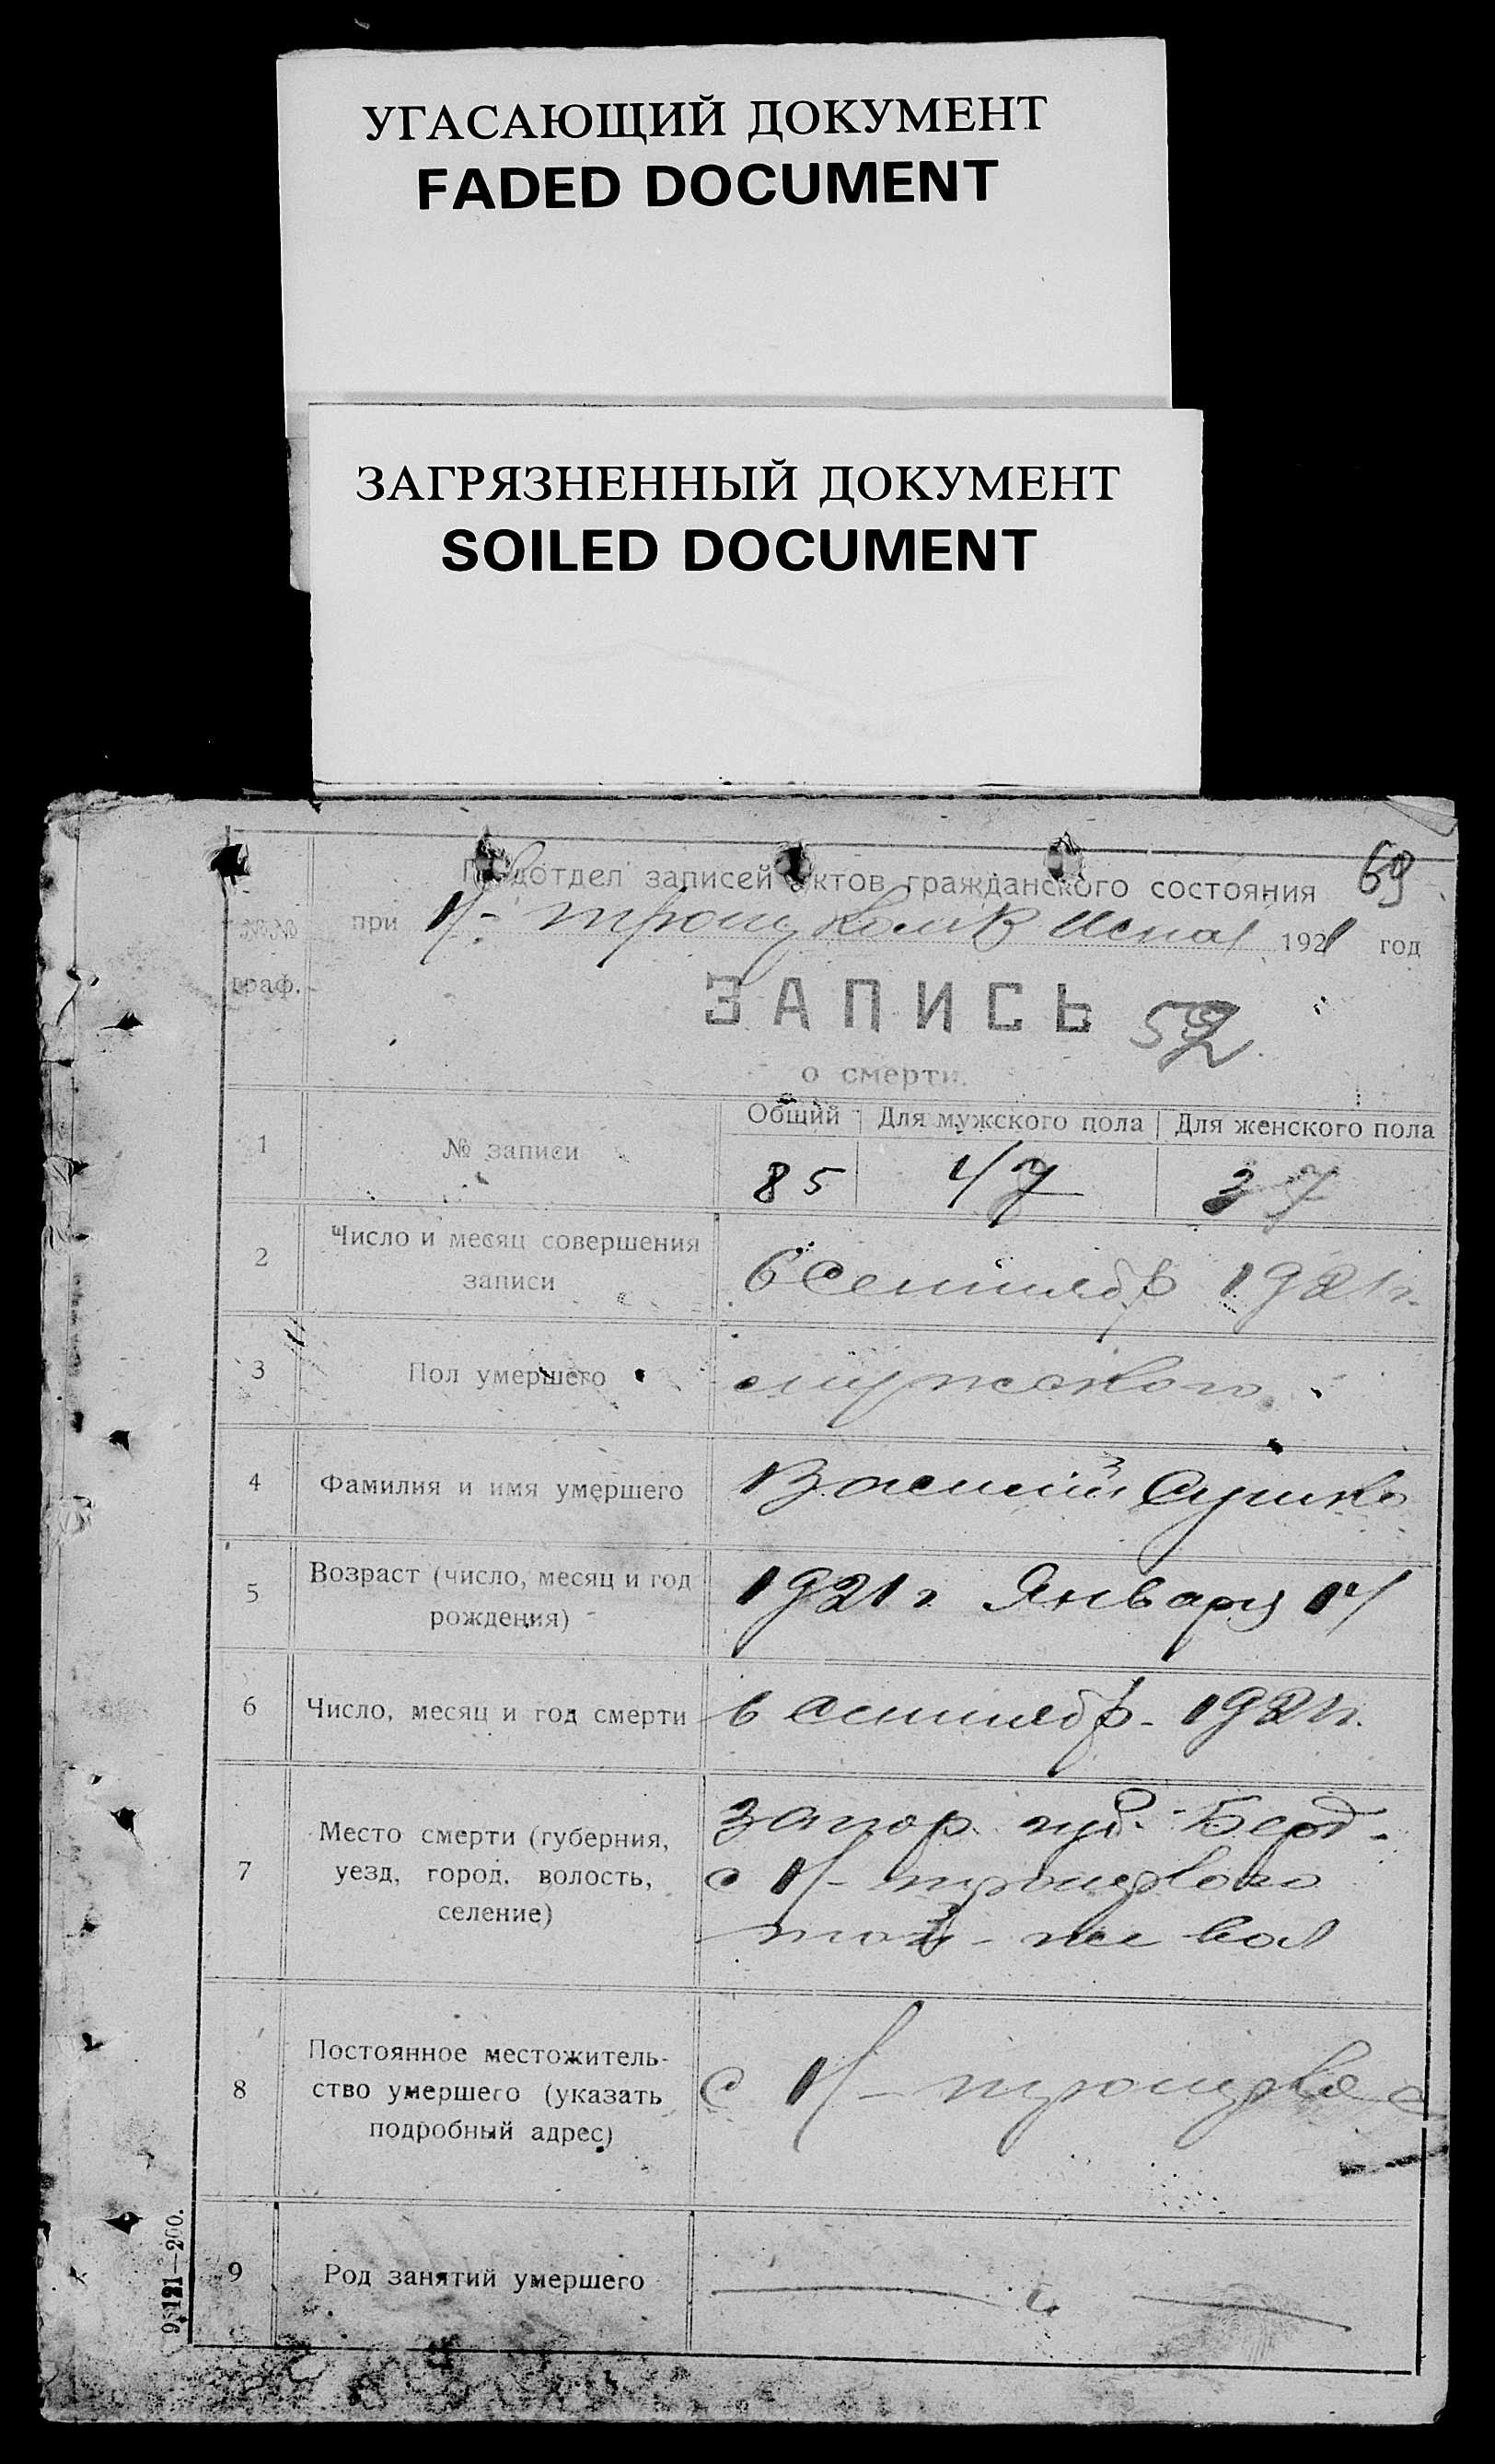 УГАСАЮЩИЙ ДОКУМЕНТ
FADED DOCUMENT
ЗАГРЯЗНЕННЫЙ ДОКУМЕНТ
SOILED DOCUMENT
69
Подотдел записей актов гражданского состояния
№№ граф.
при Н- Троиц 1921 год
ЗАПИСЬ 52
о смерти.
Общий Для мужского пола Для женского пола
1 № записи 85 47 37
2 Число и месяц совершения
записи
6 Сентябр 1921 г.
3 Пол умершего мужского
4 Фамилия и имя умершего Василий Сушко
5 Возраст (число, месяц и год
рождения)
1921 г Января 14
6 Число, месяц и год смерти 6 сентябр- 1921 г.
7 Место смерти (губерния,
уезд, город, волость,
селение)
Запор. губ. Берд-
с Н-
той-же вол
8 Постоянное местожитель-
ство умершего (указать
подробный адрес)
с Н-
9 Род занятий умершего